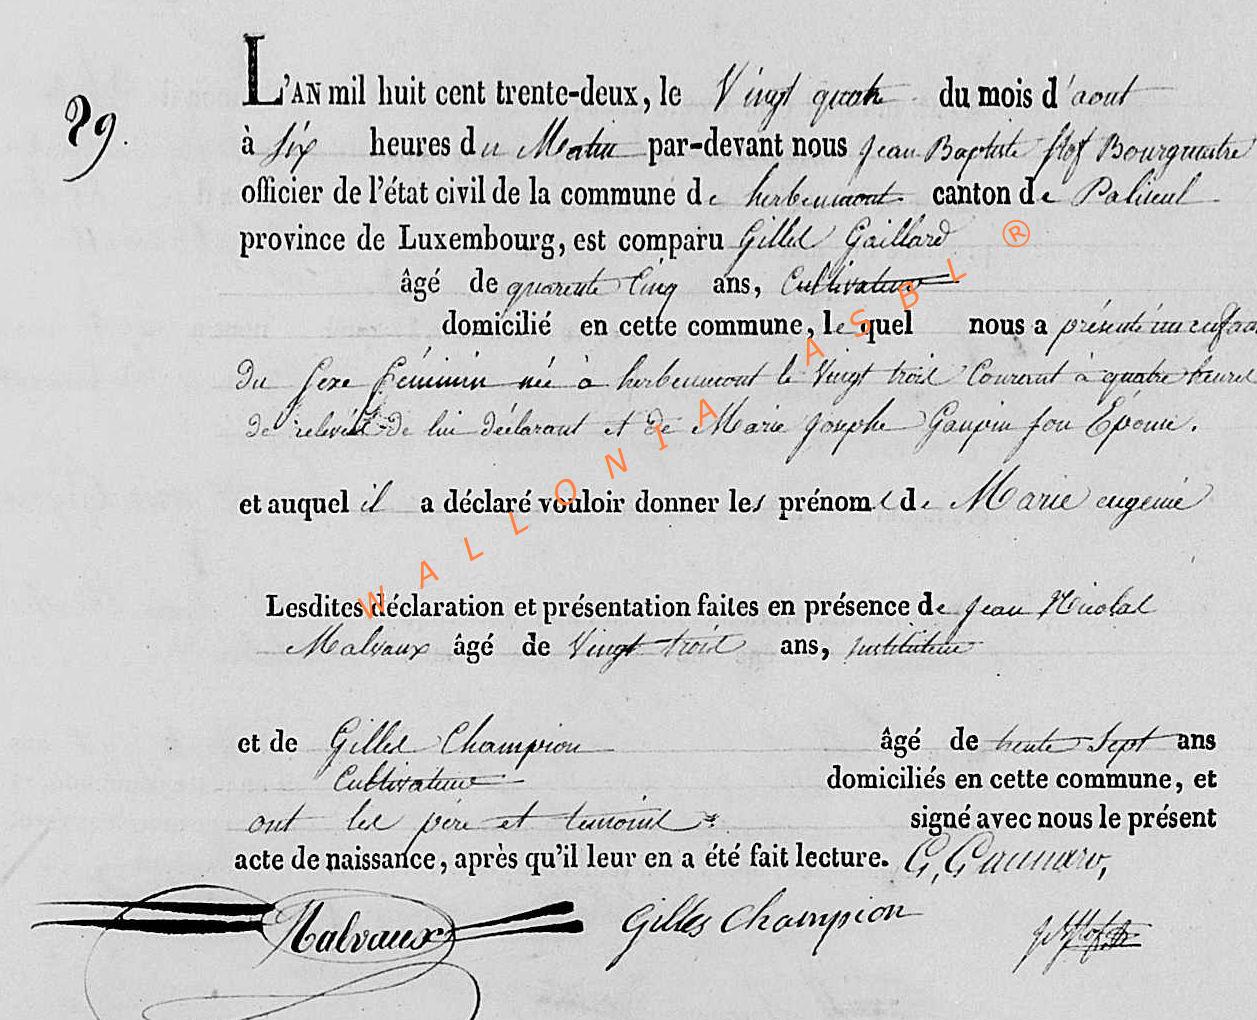 29.
L'AN mil huit cent trente-deux, le Vingt quatre du mois d'aout
à six heures du Matin par-devant nous Jean Baptiste Stof Bourguestre
officier de l'état civil de la commune de herbeumont canton de Paliseul
province de Luxembourg, est comparu Gilles Gaillard
âgé de quarente Cinq ans, Cultivateur
domicilié en cette commune, lequel nous a présenté un enfant
du sexe féminin née à herbeumont le Vingt trois Courant à quatre heures
de relevée de lui déclarant et de Marie Josephe son Épouse.
et auquel il a déclaré vouloir donner les prénoms de Marie eugenie
Lesdites déclaration et présentation faites en présence de Jean Nicolas
Malvaux âgé de Vingt trois ans, instituteur
et de Gilles Champion âgé de trente Sept ans
Cultivateur domiciliés en cette commune, et
ont les père et temoins signé avec nous le présent
acte de naissance, après qu'il leur en a été fait lecture. G,
Malvaux Gilles Champion
WALLONIA ASBL ®